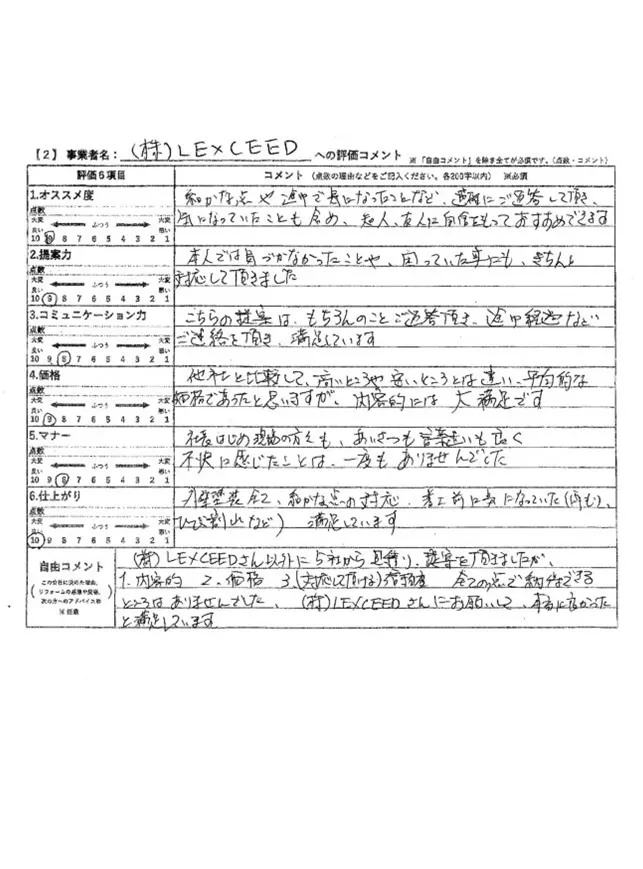 【2】 事業者名: (株)LEXCEED への評価コメント ※「自由コメント」を除き全てが必須です。(点数・コメント)
評価6項目 コメント (点数の理由などをご記入ください。各200字以内) ※必須
1.オススメ度
点数
大変良い ふつう 大変悪い
10 9 8 7 6 5 4 3 2 1
細かな点や途中で気になったことなど、適確にご返答して頂き、
気になっていたことも含め、知人、友人に自信をもっておすすめできます
2.提案力
点数
大変良い ふつう 大変悪い
10 9 8 7 6 5 4 3 2 1
本人では気づかなかったことや、困っていた事にも、きちんと
対応して頂きました
3.コミュニケーション力
点数
大変良い ふつう 大変悪い
10 9 8 7 6 5 4 3 2 1
こちらの提案は、もちろんのことご返答頂き、途中経過など
ご連絡を頂き、満足しています
4.価格
点数
大変良い ふつう 大変悪い
10 9 8 7 6 5 4 3 2 1
他社と比較して、高いところや安いところとは違い、平均的な
価格であったと思いますが、内容的には大満足です
5.マナー
点数
大変良い ふつう 大変悪い
10 9 8 7 6 5 4 3 2 1
社長はじめ現場の方々も、あいさつも言葉遣いも良く
不快に感じたことは、一度もありませんでした
6.仕上がり
点数
大変良い ふつう 大変悪い
10 9 8 7 6 5 4 3 2 1
外壁塗装全て、細かな点への対応、着工前に気になっていた(
ひび割れなど) 満足しています
自由コメント
この会社に決めた理由、
リフォームの感想や反省、
次の方へのアドバイス等
※任意
(株)LEXCEEDさん以外に5社から見積り、提案を頂きましたが、
1.内容的 2.価格 3.(対応して頂ける) 全ての点で納得できる
ところはありませんでした、(株)LEXCEEDさんにお願いして、本当に良かった
と満足しています